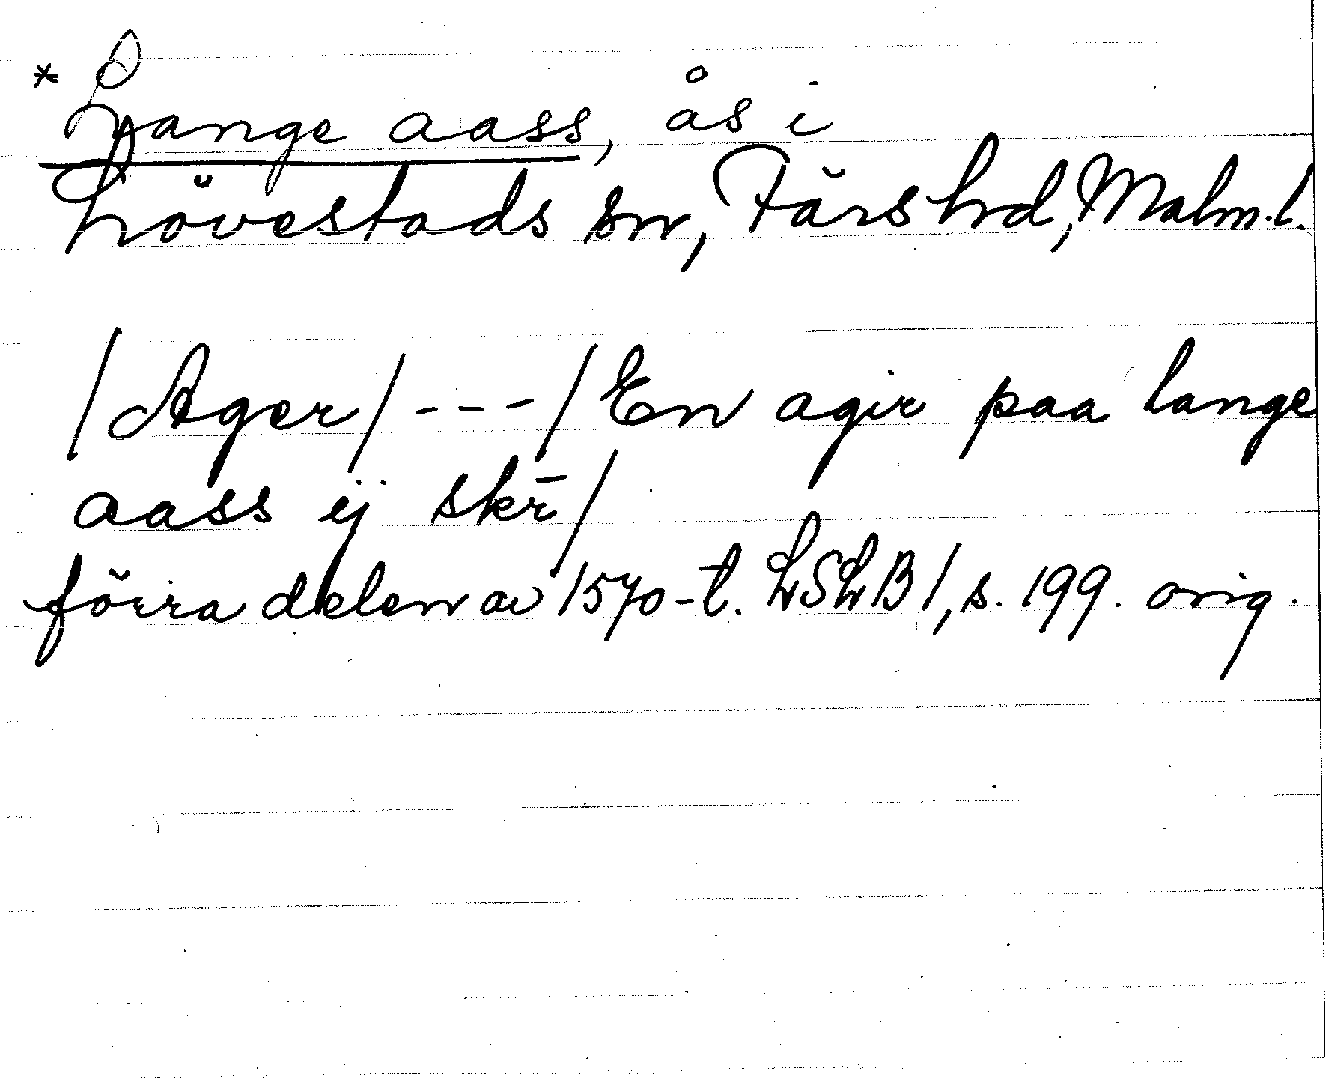 * Lange aass, ås i
Lövestads sn, Färs hd, Malm. l.
/Ager/---/En agir paa lange
aass ij skr̄/
förra delen av 1570-t. LSLB 1, s. 199. orig.